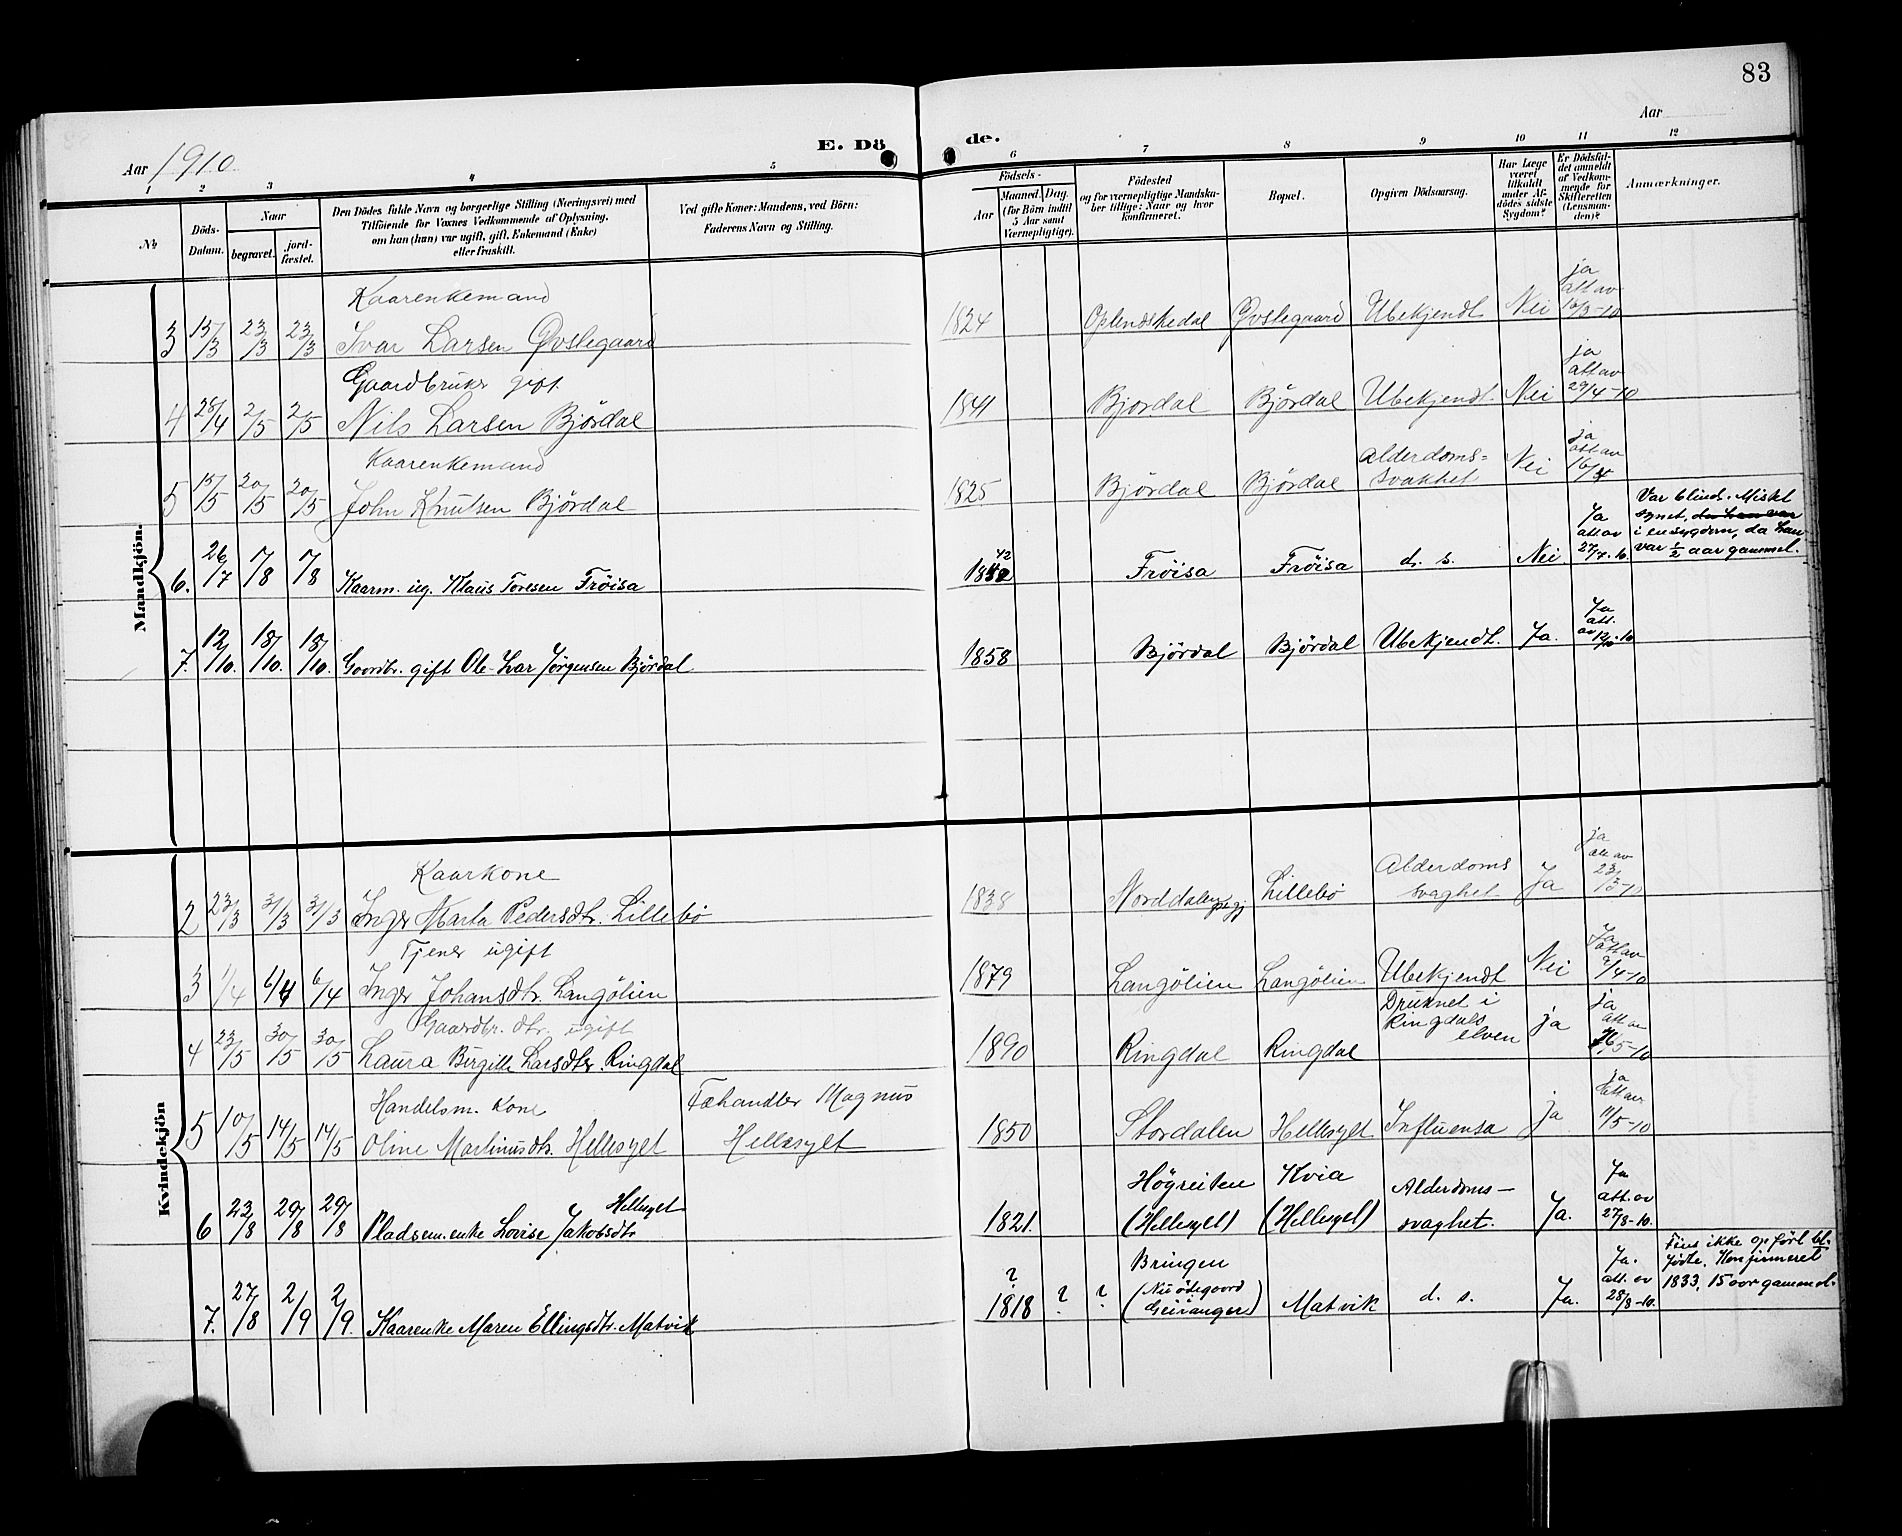 83
Aar 1910.
E. Dö de.
Aar
1 2 3 4 5 6 7 8 9 10 11 12
No
Döds-Datum.
Naar
begravet.
jord-fæstet.
Den Dödes fulde Navn og borgerlige Stilling (Næringsvei) med
Tilföiende for Voxnes Vedkommende af Oplysning,
om han (hun) var ugift, gift, Enkemand (Enke)
eller fraskilt.
Ved gifte Koner: Mandens, ved Börn:
Faderens Navn og Stilling.
Födsels-
Aar
Maaned. Dag.
(for Börn indtil
5 Aar samt
Værnepligtige).
Födested
og for værnepligtige Mandska-
ber tillige: Naar og hvor
konfirmeret.
Bopæl.
Opgiven Dödsaarsag.
Har Læge
været
tilkaldt
under Af-
dödes sidste
Sygdom?
Er Dödsfal-
det anmeldt
af Vedkom-
mende for
Skifteretten
(Lensman-
den)?
Anmærkninger.
Mandkjön.
Kaarenkemand
3 15/3 23/3 23/3 Ivar Larsen Øvslegaard 1824 Oplendskedal Øvslegaard Ubekjendt Nei ja att av 16/3-10
Gaardbruker gift
4 28/4 2/5 2/5 Nils Larsen Björdal 1841 Bjordal Björdal Ubekjendt. Nei ja att av 29/4-10
Kaarenkemand
5 15/5 20/5 20/5 John Knutsen Björdal 1825 Björdal Björdal Alderdoms=svakhet Nei ja att av
6. 26/7 7/8 7/8 Kaarm. ug. Klaus Toresen Fröisa 1842 Fröisa Fröisa d. s. Nei. Ja att av 27/7-10. Var blind. Mistet
synet, da han var
i en sygdom, da han
var 1/2 aar gammel.
7. 12/10. 18/10. 18/10. Gaardbr. gift Ole-Lar Jørgensen Björdal 1858 Björdal Björdal Ubekjendt. Ja. Ja att. av 12/10-10
Kvindekjön
Kaarkone
2 23/3 31/3 31/3 Inger Marta Pedersdtr. Lillebö 1838 Norddalen prgj Lillebö Alderdoms svaghet Ja ja att av 23/3-10
Tjener ugift
3 1/4 6/4 6/4 Inger Johansdtr. Langölien 1879 Langölien Langölien Ubekjendt Nei Ja att av 2/4-10
Gaardbr. dtr. ugift
4 23/5 30/5 30/5 Laura Birgitte Larsdtr. Ringdal 1890 Ringdal Ringdal Druknet i Ringdals elven ja ja att av 26/5-10
Handelsm. Kone
5 10/5 14/5 14/5 Oline Martinusdtr. Hellesylt Fæhandler Magnus Hellesylt 1850 Stordalen Hellesylt Influensa ja ja att av 11/5-10
6 23/8 29/8 29/8 Pladsem. enke Lovise Jakobsdtr Hellesylt 1821. Högreiten (Hellesylt) Kvia (Hellesylt) Alderdoms-svaghet. Ja. Ja att. av 27/8-10.
7. 27/8 2/9 2/9. Kaarenke Maren Ellingsdtr. Matvik ? 1818 ? ? Bringen (Nu ödegaard Geiranger) Matvik d. s. Ja. Ja. att. av 28/8-10. Fins ikke opfört bl.
födte. Konfirmeret
1833, 15 aar gammel.